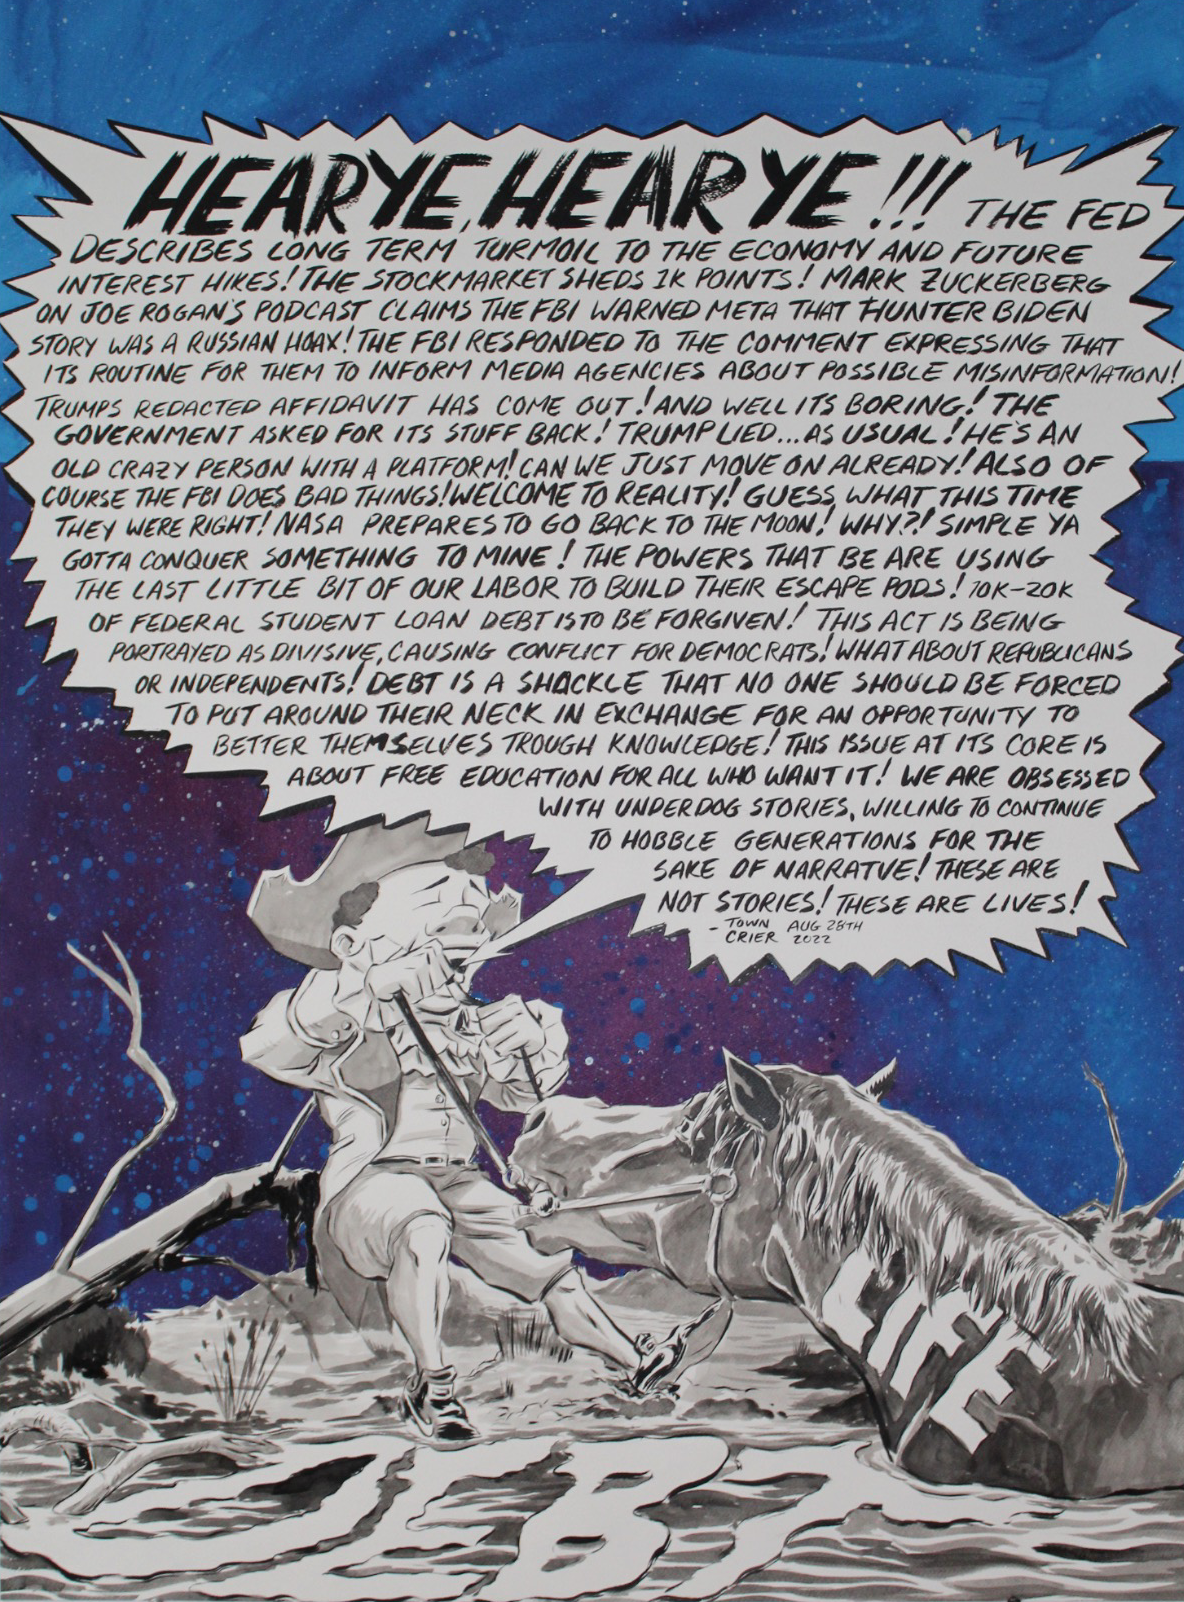 HEARYE, HEAR YE!!! THE FED
DESCRIBES LONG TERM TURMOIL TO THE ECONOMY AND FUTURE
INTEREST HIKES! THE STOCKMARKET SHEDS 1K POINTS! MARK ZUCKERBERG
ON JOE ROGAN'S PODCAST CLAIMS THE FBI WARNED META THAT HUNTER BIDEN
STORY WAS A RUSSIAN HOAX! THE FBI RESPONDED TO THE COMMENT EXPRESSING THAT
ITS ROUTINE FOR THEM TO INFORM MEDIA AGENCIES ABOUT POSSIBLE MISINFORMATION!
TRUMPS REDACTED AFFIDAVIT HAS COME OUT! AND WELL ITS BORING! THE
GOVERNMENT ASKED FOR ITS STUFF BACK! TRUMP LIED...AS USUAL! HE'S AN
OLD CRAZY PERSON WITH A PLATFORM! CAN WE JUST MOVE ON ALREADY! ALSO OF
COURSE THE FBI DOES BAD THINGS! WELCOME TO REALITY! GUESS WHAT THIS TIME
THEY WERE RIGHT! NASA PREPARES TO GO BACK TO THE MOON! WHY?! SIMPLE YA
GOTTA CONQUER SOMETHING TO MINE! THE POWERS THAT BE ARE USING
THE LAST LITTLE BIT OF OUR LABOR TO BUILD THEIR ESCAPE PODS! 10K-20K
OF FEDERAL STUDENT LOAN DEBT IS TO BE FORGIVEN! THIS ACT IS BEING
PORTRAYED AS DIVISIVE, CAUSING CONFLICT FOR DEMOCRATS! WHAT ABOUT REPUBLICANS
OR INDEPENDENTS! DEBT IS A SHACKLE THAT NO ONE SHOULD BE FORCED
TO PUT AROUND THEIR NECK IN EXCHANGE FOR AN OPPORTUNITY TO
BETTER THEMSELVES TROUGH KNOWLEDGE! THIS ISSUE AT ITS CORE IS
ABOUT FREE EDUCATION FOR ALL WHO WANT IT! WE ARE OBSESSED
WITH UNDERDOG STORIES, WILLING TO CONTINUE
TO HOBBLE GENERATIONS FOR THE
SAKE OF NARRATVE! THESE ARE
NOT STORIES! THESE ARE LIVES!
- TOWN AUG 28TH
CRIER 2022
LIFE
DEBT